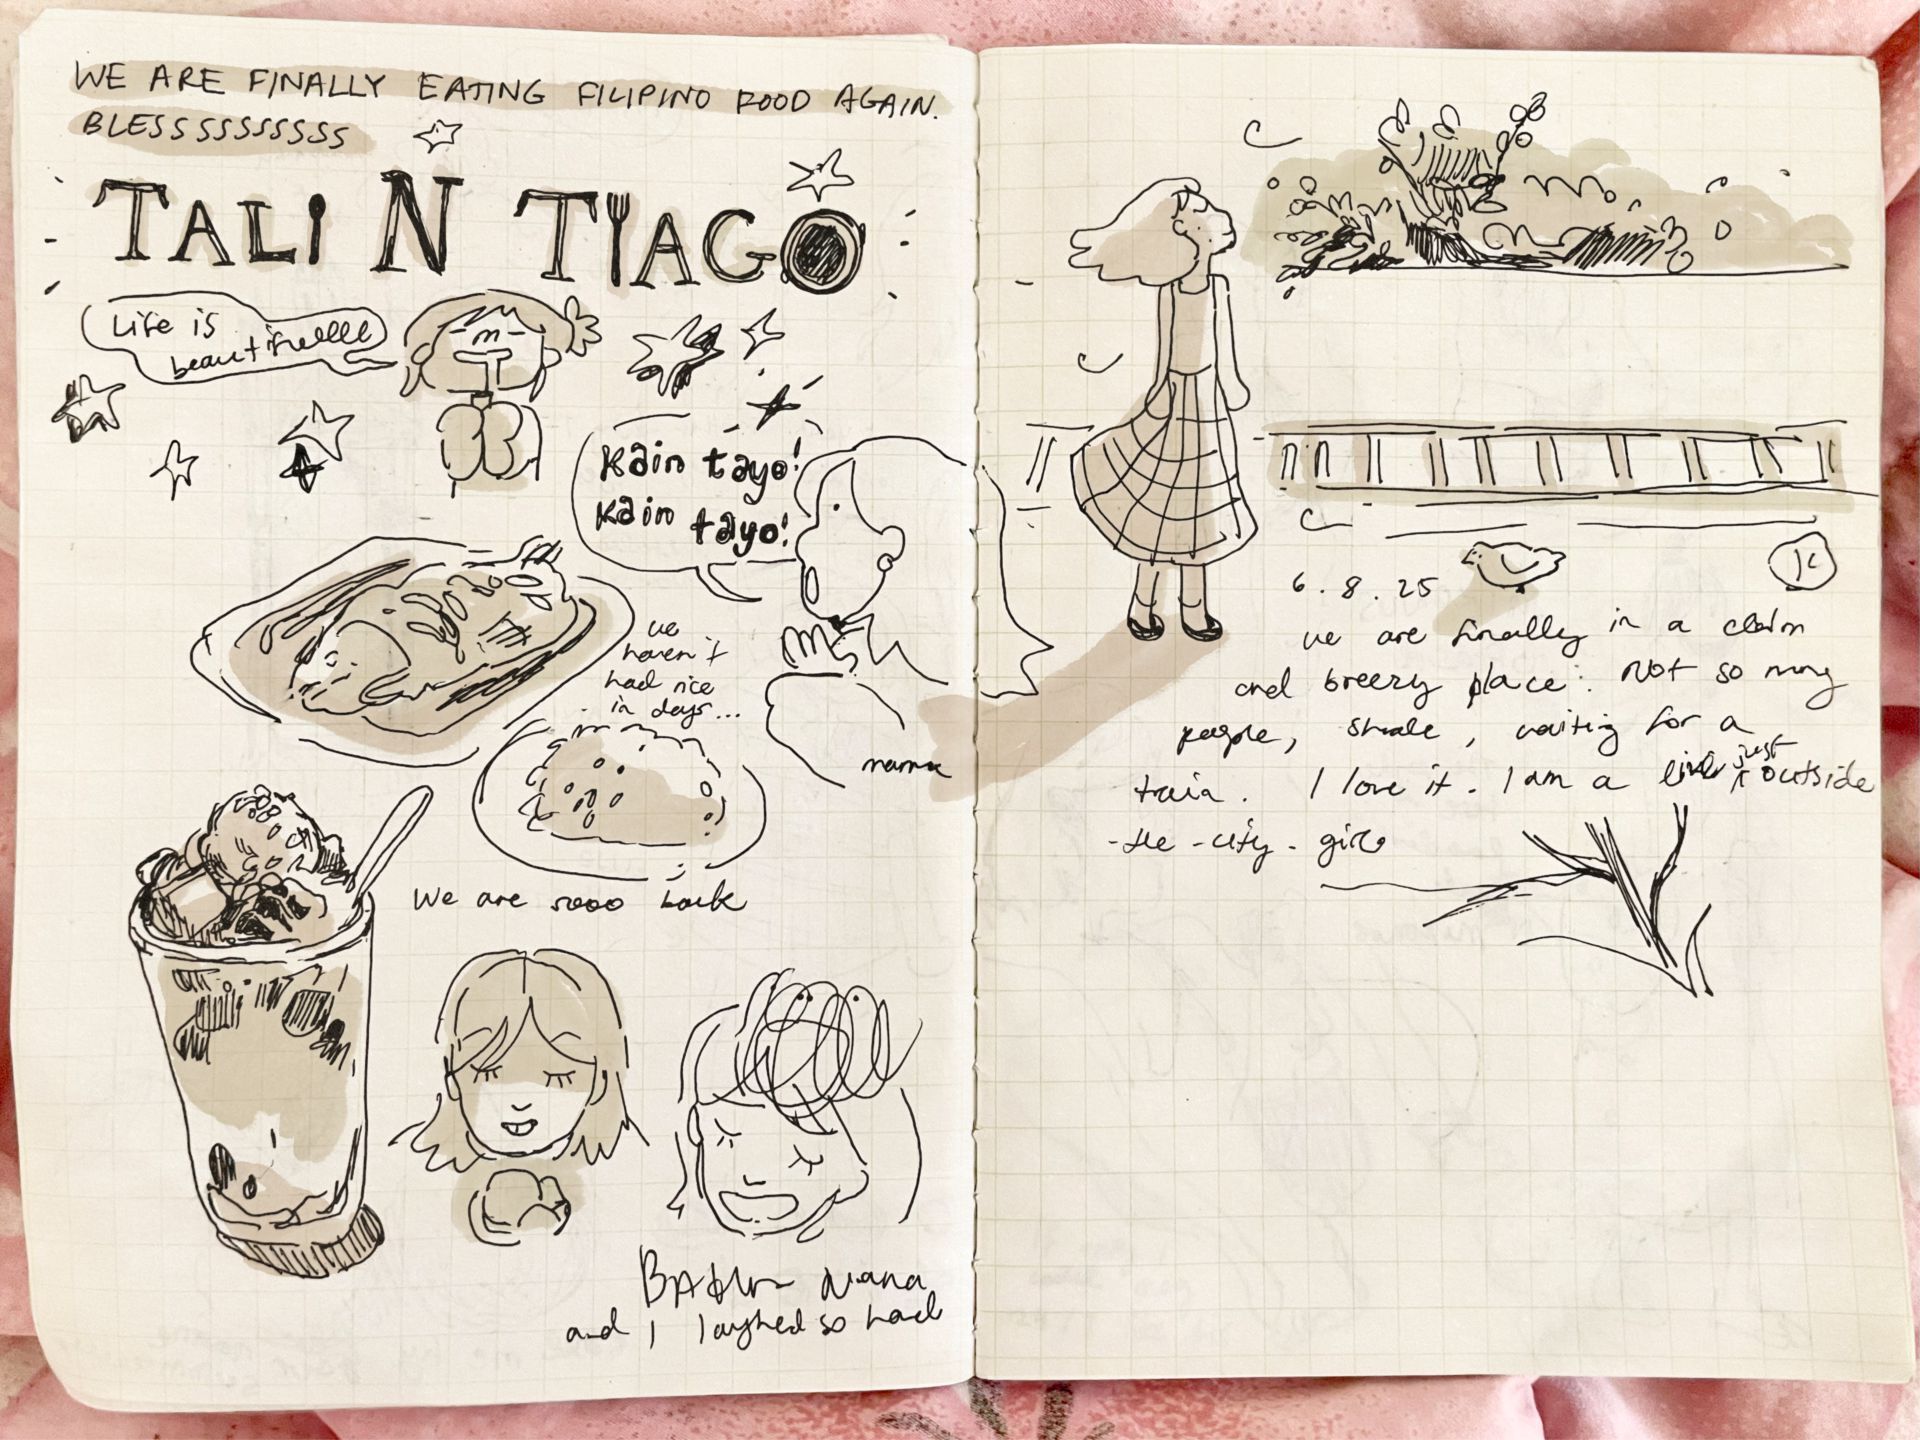 WE ARE FINALLY EATING FILIPINO FOOD AGAIN.
BLESSSSSSSSSSS
TALI N TIAGO
Life is
beautifullll
Kain tayo!
Kain tayo!
we
haven't
had rice
in days...
mama
We are sooo back
nana
and I laughed so hard
6.8.25
we are finally in a
and breezy place. Not so many
people, shade, waiting for a
train. I love it. I am a live just outside
-the-city-girl